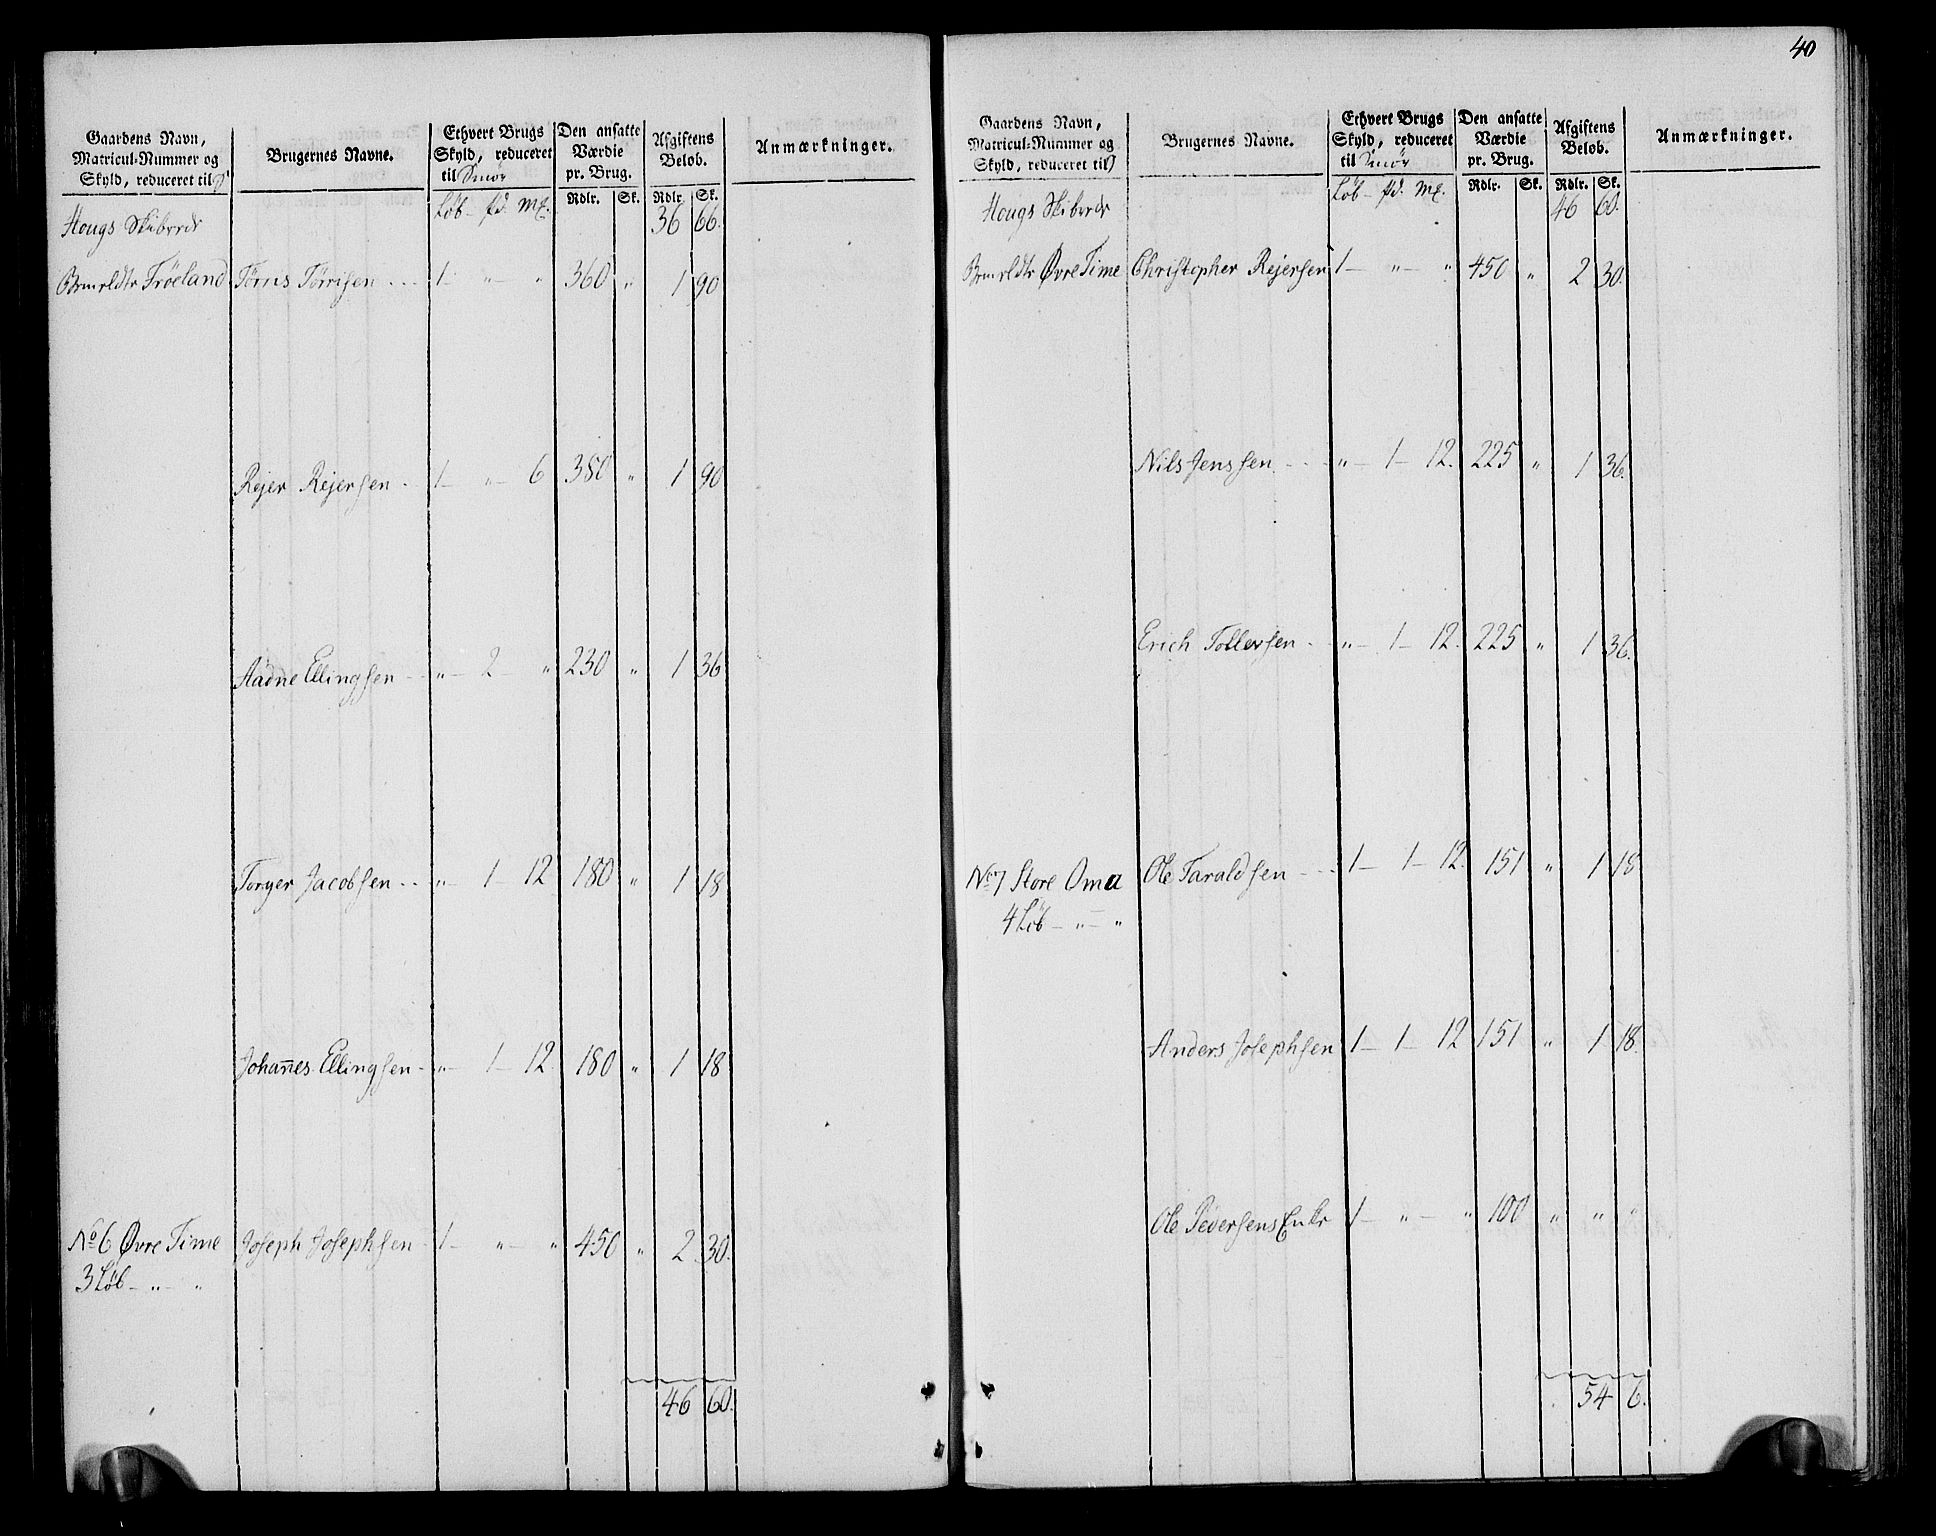 40
Gaardens Navn, Matricul-Nummer og Skyld, reduceret til
Brugernes Navne.
Ethvert Brugs Skyld, reduceret til Smör
Den ansatte Værdie pr. Brug.
Afgiftens Beløb.
Anmærkninger.
Løb - pd. Mk. Rdlr. Sk. Rdlr. Sk.
Hougs Skibrede 36 66.
Frøeland Tørris Tørrisen 1 " " 360 " 1 90
Rejer Rejersen 1 " 6 380 " 1 90
Aadne Ellingsen " 2 " 230 " 1 36
Torger Jacobsen " 1 12 180 " 1 18
Johannes Ellingsen " 1 12 180 " 1 18
No 6 Øvre Time Joseph Josephsen 1 " " 450 " 2 30.
3 Løb - " - "
46 60.
Gaardens Navn, Matricul-Nummer og Skyld, reduceret til
Brugernes Navne.
Ethvert Brugs Skyld, reduceret til Smör
Den ansatte Værdie pr. Brug.
Afgiftens Beløb.
Anmærkninger.
Løb - pd. Mk. Rdlr. Sk. Rdlr. Sk.
Hougs Skibrede 46 60.
Øvre Time Christopher Rejersen 1 " " 450 " 2 30.
Nils Jenssen " 1 12. 225 " 1 36.
Erich Tollersen " 1 12. 225 " 1 36.
No 7 Store Oma Ole Taraldsen 1 1 12. 151 " 1 18
4 Løb - " - "
Anders Josephsen 1 1 12 151 " 1 18.
Ole Pedersens Enke 1 " " 100 " " "
54 6.